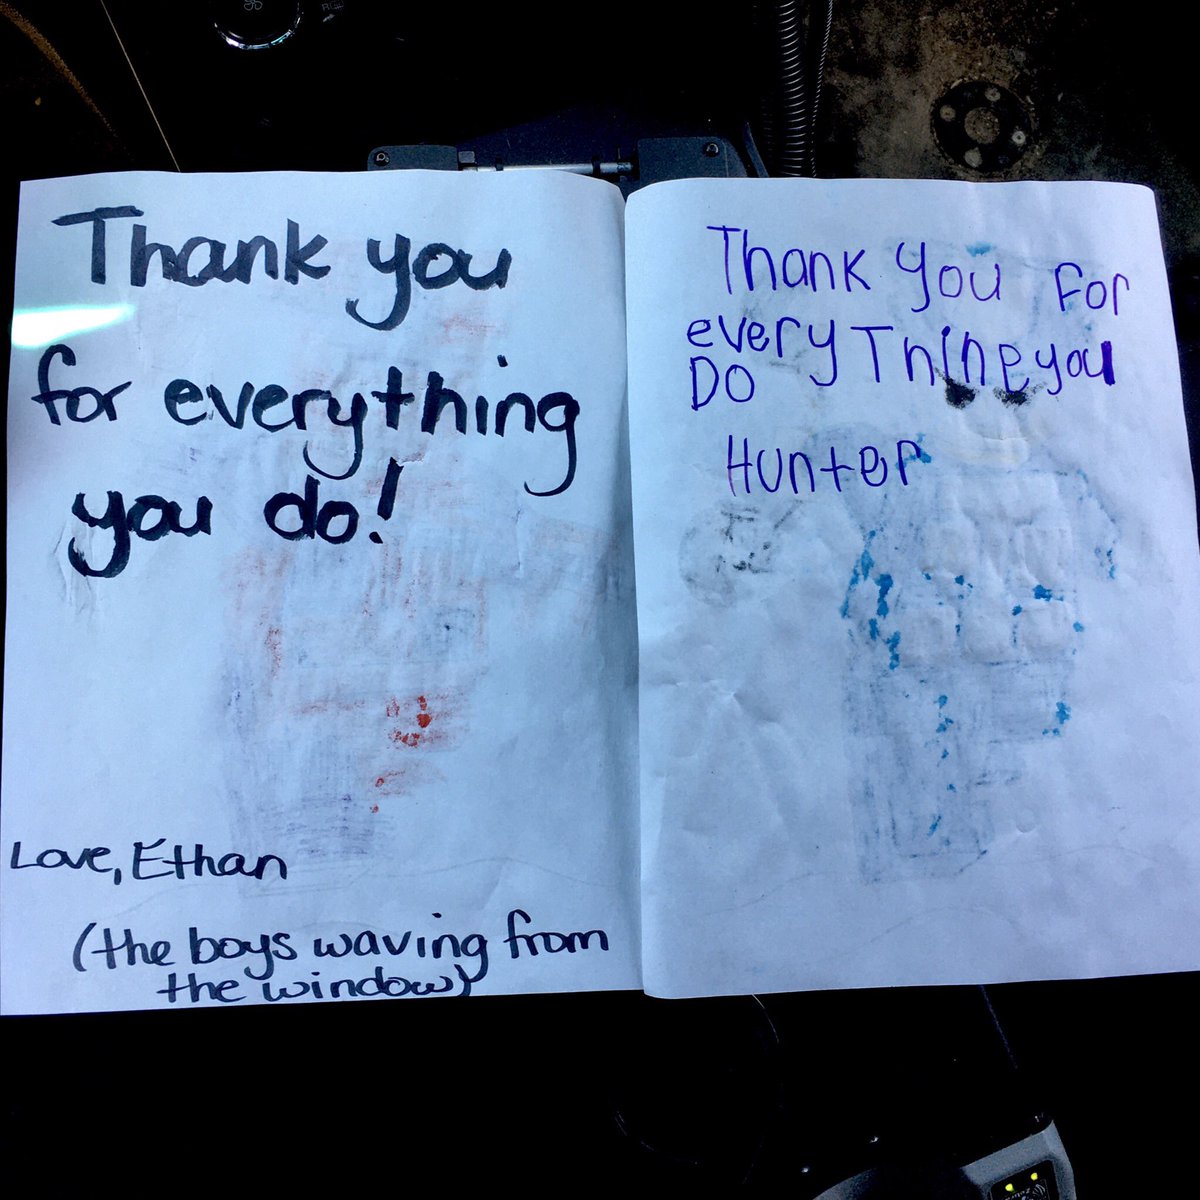 Thank you
for everything
you do!
Love, Ethan
(the boys waving from
the window)
Thank you For
every Thing you
DO
Hunter